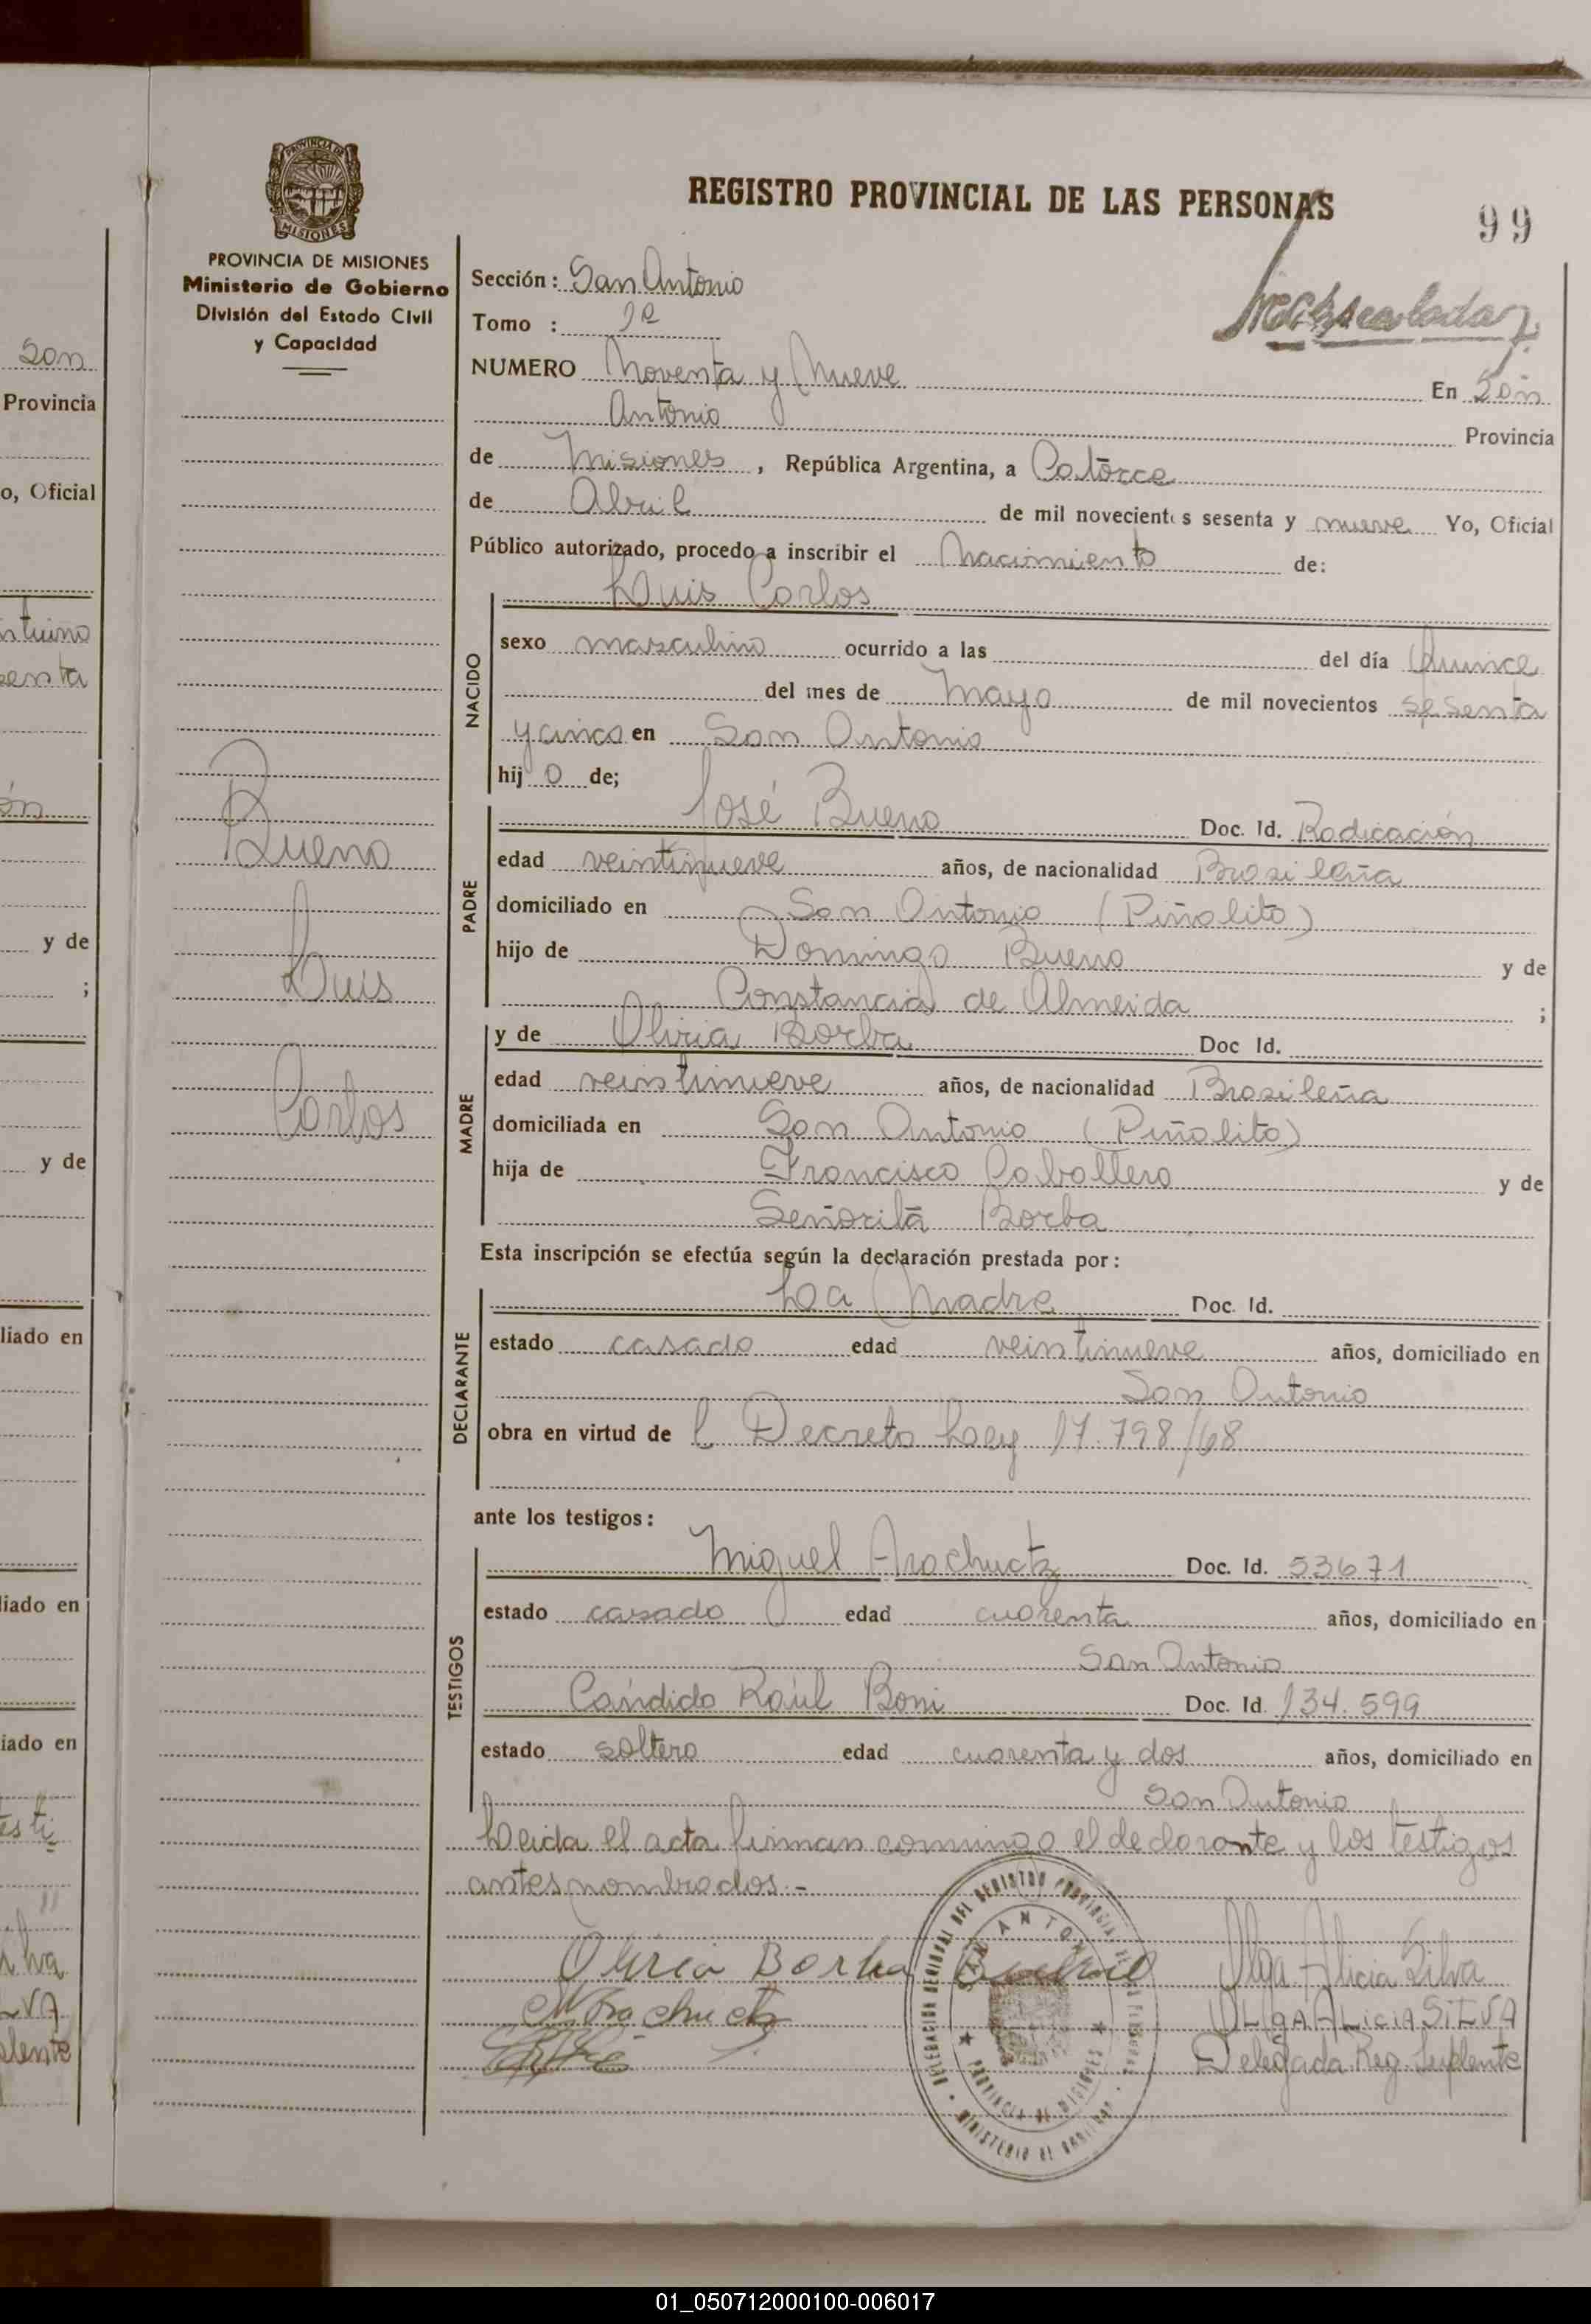 son
Provincia
o, Oficial
y de
;
y de
liado en
liado en
iado en
LVA
PROVINCIA DE
MISIONES
PROVINCIA DE MISIONES
Ministerio de Gobierno
División del Estado Civil
y Capacidad
Bueno
Luis
Carlos
REGISTRO PROVINCIAL DE LAS PERSONAS
99
Sección: San Antonio
Tomo :
NUMERO Noventa y Nueve En San
Antonio Provincia
de Misiones, República Argentina, a Catorce
de Abril de mil novecientos sesenta y nueve Yo, Oficial
Público autorizado, procedo a inscribir el Nacimiento de:
Luis Carlos
NACIDO
sexo masculino ocurrido a las del día Quince
del mes de Mayo de mil novecientos sesenta
y cinco en San Antonio
hijo de;
PADRE
José Bueno Doc. Id. Radicación
edad veintinueve años, de nacionalidad Brasileña
domiciliado en San Antonio (Piñalito)
hijo de Domingo Bueno y de
Constancia de Almeida ;
MADRE
y de Oliria Borba Doc Id.
edad veintinueve años, de nacionalidad Brasileña
domiciliada en San Antonio (Piñalito)
hija de Francisco Caballero y de
Señorita Borba
Esta inscripción se efectúa según la declaración prestada por:
DECLARANTE
La Madre Doc. Id.
estado casado edad veintinueve años, domiciliado en
San Antonio
obra en virtud de l Decreto Ley 17.798/68
ante los testigos:
TESTIGOS
Miguel Arachuctz Doc. Id. 53671
estado casado edad cuarenta años, domiciliado en
San Antonio
Cándido Raúl Boni Doc. Id. 134.599
estado soltero edad cuarenta y dos años, domiciliado en
San Antonio
Leida el acta firman conmingo el declarante y los testigos
antes nombrados.-
Oliria Borba Bueno Olga Alicia Silva
OLGA ALICIA SILVA
Delegada Reg. Suplente
01_050712000100-006017